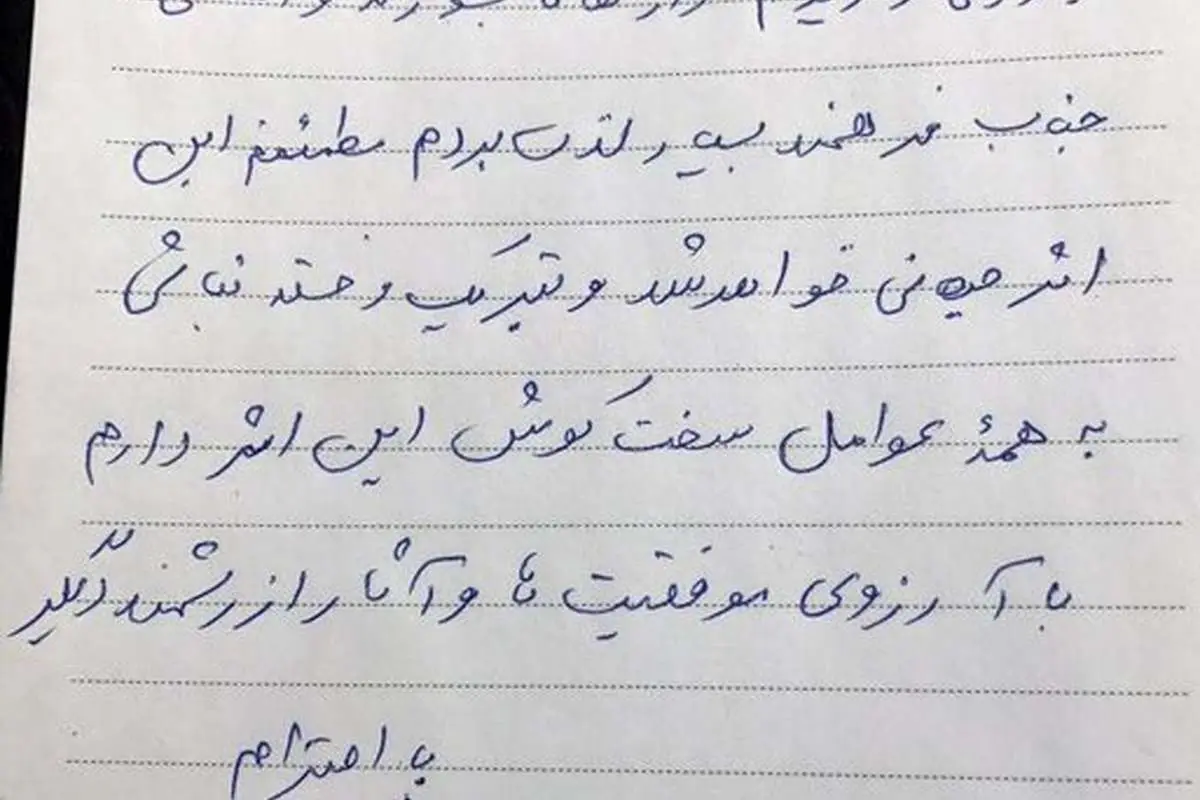 جذاب و هنرمند بسیار لذت بردم مطمئنم این
اثر جهانی خواهد شد و تبریک و خسته نباشی
به همهٔ عوامل سخت‌کوش این اثر دارم
با آرزوی موفقیت ها و آثار ارزشمند دیگر
با احترام